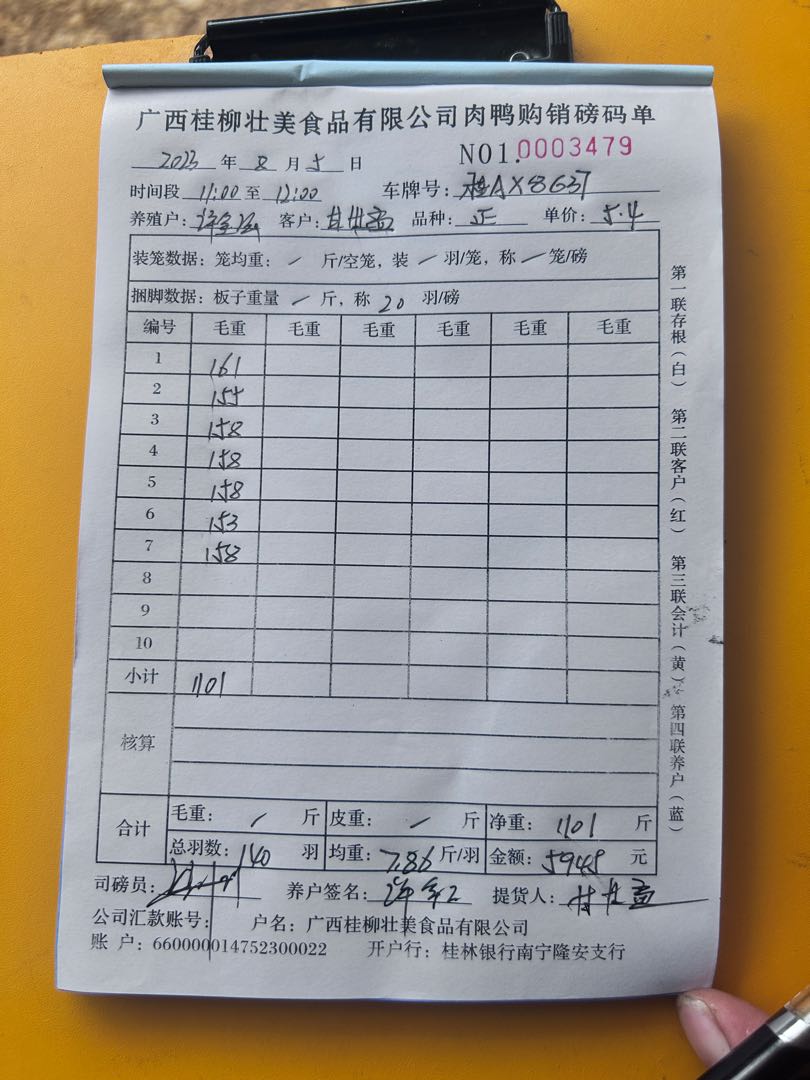 广西桂柳壮美食品有限公司肉鸭购销磅码单
2023 年 8 月 5 日 NO1.0003479
时间段 11:00 至 12:00 车牌号: 桂AX8G37
养殖户: 客户: 甘世 品种: 正 单价: 5.4
装笼数据: 笼均重: / 斤/空笼, 装 / 羽/笼, 称 / 笼/磅
捆脚数据: 板子重量 / 斤, 称 20 羽/磅
编号 毛重 毛重 毛重 毛重 毛重 毛重
1 161
2 155
3 158
4 158
5 158
6 153
7 158
8
9
10
小计 1101
核算
合计 毛重: / 斤 皮重: / 斤 净重: 1101 斤
总羽数: 140 羽 均重: 7.86 斤/羽 金额: 5948 元
司磅员: 养户签名: 提货人: 甘世
公司汇款账号: 户名: 广西桂柳壮美食品有限公司
账 户: 660000014752300022 开户行: 桂林银行南宁隆安支行
第一联存根(白) 第二联客户(红) 第三联会计(黄) 第四联养户(蓝)